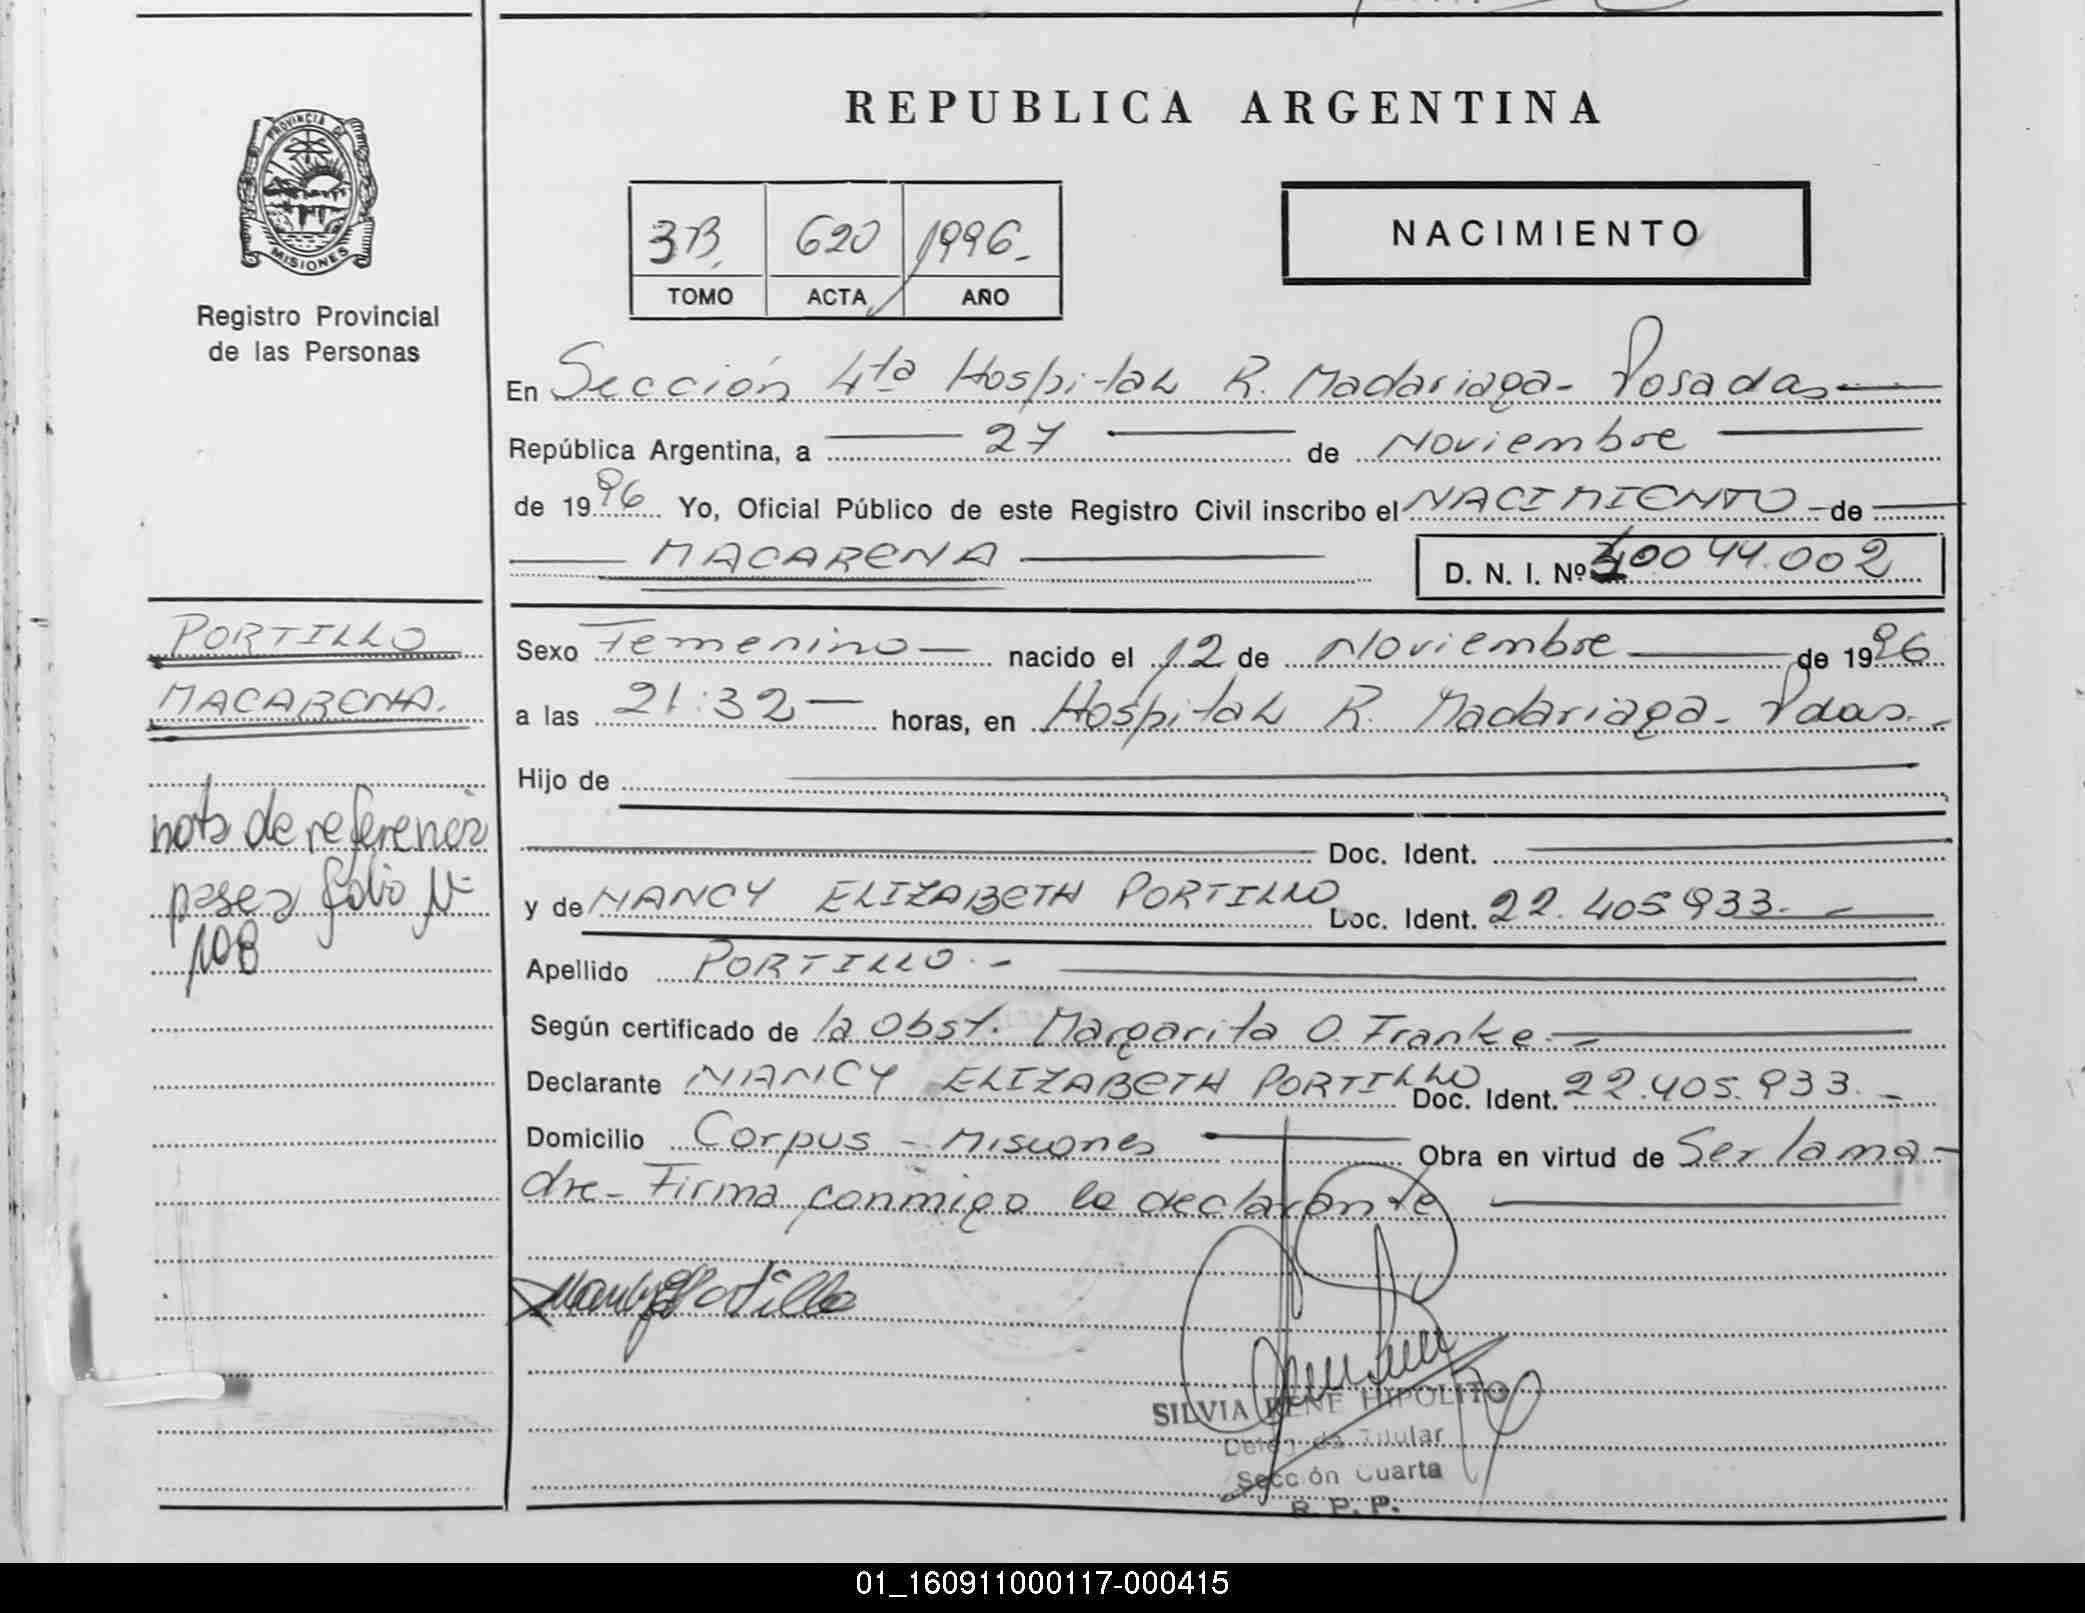 PROVINCIA DE
MISIONES
Registro Provincial
de las Personas
REPUBLICA ARGENTINA
3B 620 1996.
TOMO ACTA AÑO
NACIMIENTO
En Sección 4ta Hospital R. Madariaga - Posadas
República Argentina, a 27 de Noviembre
de 1996 Yo, Oficial Público de este Registro Civil inscribo el NACIMIENTO - de
MACARENA D. N. I. Nº 40044.002
Sexo Femenino nacido el 12 de Noviembre de 1996
a las 21:32 horas, en Hospital R. Madariaga - Pdas.
Hijo de
Doc. Ident.
y de NANCY ELIZABETH PORTILLO Doc. Ident. 22.405933.
Apellido PORTILLO.-
Según certificado de la Obst. Margarita O. Franke.-
Declarante NANCY ELIZABETH PORTILLO Doc. Ident. 22.405.933.-
Domicilio Corpus - Misiones Obra en virtud de Ser la ma-
dre - Firma conmigo la declarante
PORTILLO
MACARENA.
nota de referencia
pasea folio Nº
108
Nancy E Portillo
SILVIA RENE HIPOLITO
Delegada Titular
Sección Cuarta
R. P. P.
01_160911000117-000415